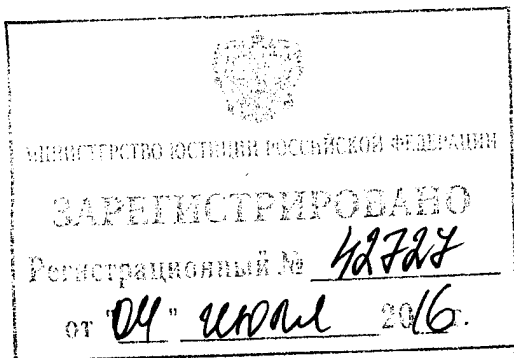 МИНИСТЕРСТВО ЮСТИЦИИ РОССИЙСКОЙ ФЕДЕРАЦИИ
ЗАРЕГИСТРИРОВАНО
Регистрационный № 42727
от "04" июля 2016г.